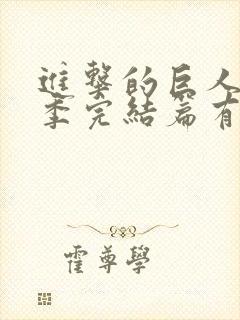 進擊的巨人
季完結篇有
霍尊學